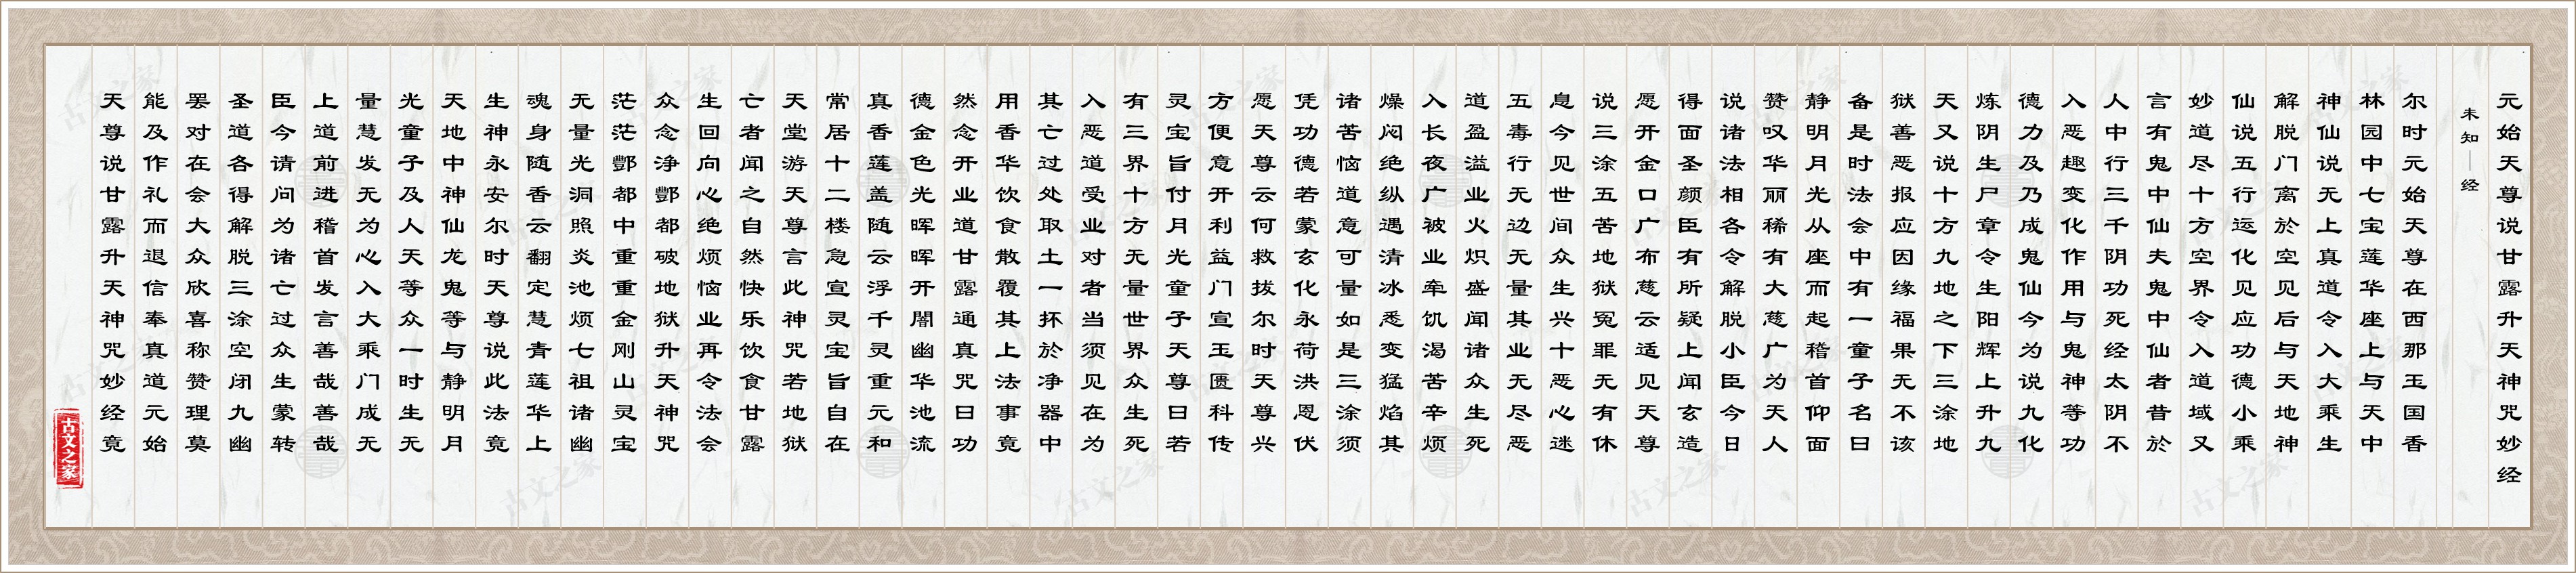 元始天尊说甘露升天神咒妙经
未知｜经
尔时元始天尊在西那玉国香
林园中七宝莲华座上与天中
神仙说无上真道令入大乘生
解脱门离於空见后与天地神
仙说五行运化见应功德小乘
妙道尽十方空界令入道域又
言有鬼中仙夫鬼中仙者昔於
人中行三千阴功死经太阴不
入恶趣变化作用与鬼神等功
德力及乃成鬼仙今为说九化
炼阴生尸章令生阳辉上升九
天又说十方九地之下三涂地
狱善恶报应因缘福果无不该
备是时法会中有一童子名曰
静明月光从座而起稽首仰面
赞叹华丽稀有大慈广为天人
说诸法相各令解脱小臣今日
得面圣颜臣有所疑上闻玄造
愿开金口广布慈云适见天尊
说三涂五苦地狱冤罪无有休
息今见世间众生兴十恶心迷
五毒行无边无量其业无尽恶
道盈溢业火炽盛闻诸众生死
入长夜广被业牵饥渴苦辛烦
燥闷绝纵遇清冰悉变猛焰其
诸苦恼道意可量如是三涂须
凭功德若蒙玄化永荷洪恩伏
愿天尊云何救拔尔时天尊兴
方便意开利益门宣玉匮科传
灵宝旨付月光童子天尊曰若
有三界十方无量世界众生死
入恶道受业对者当须见在为
其亡过处取土一抔於净器中
用香华饮食散覆其上法事竟
然念开业道甘露通真咒曰功
德金色光晖晖开闇幽华池流
真香莲盖随云浮千灵重元和
常居十二楼急宣灵宝旨自在
天堂游天尊言此神咒若地狱
亡者闻之自然快乐饮食甘露
生回向心绝烦恼业再令法会
众念净酆都破地狱升天神咒
茫茫酆都中重重金刚山灵宝
无量光洞照炎池烦七祖诸幽
魂身随香云翻定慧青莲华上
生神永安尔时天尊说此法竟
天地中神仙龙鬼等与静明月
光童子及人天等众一时生无
量慧发无为心入大乘门成无
上道前进稽首发言善哉善哉
臣今请问为诸亡过众生蒙转
圣道各得解脱三涂空闭九幽
罢对在会大众欣喜称赞理莫
能及作礼而退信奉真道元始
天尊说甘露升天神咒妙经竟
古文之家